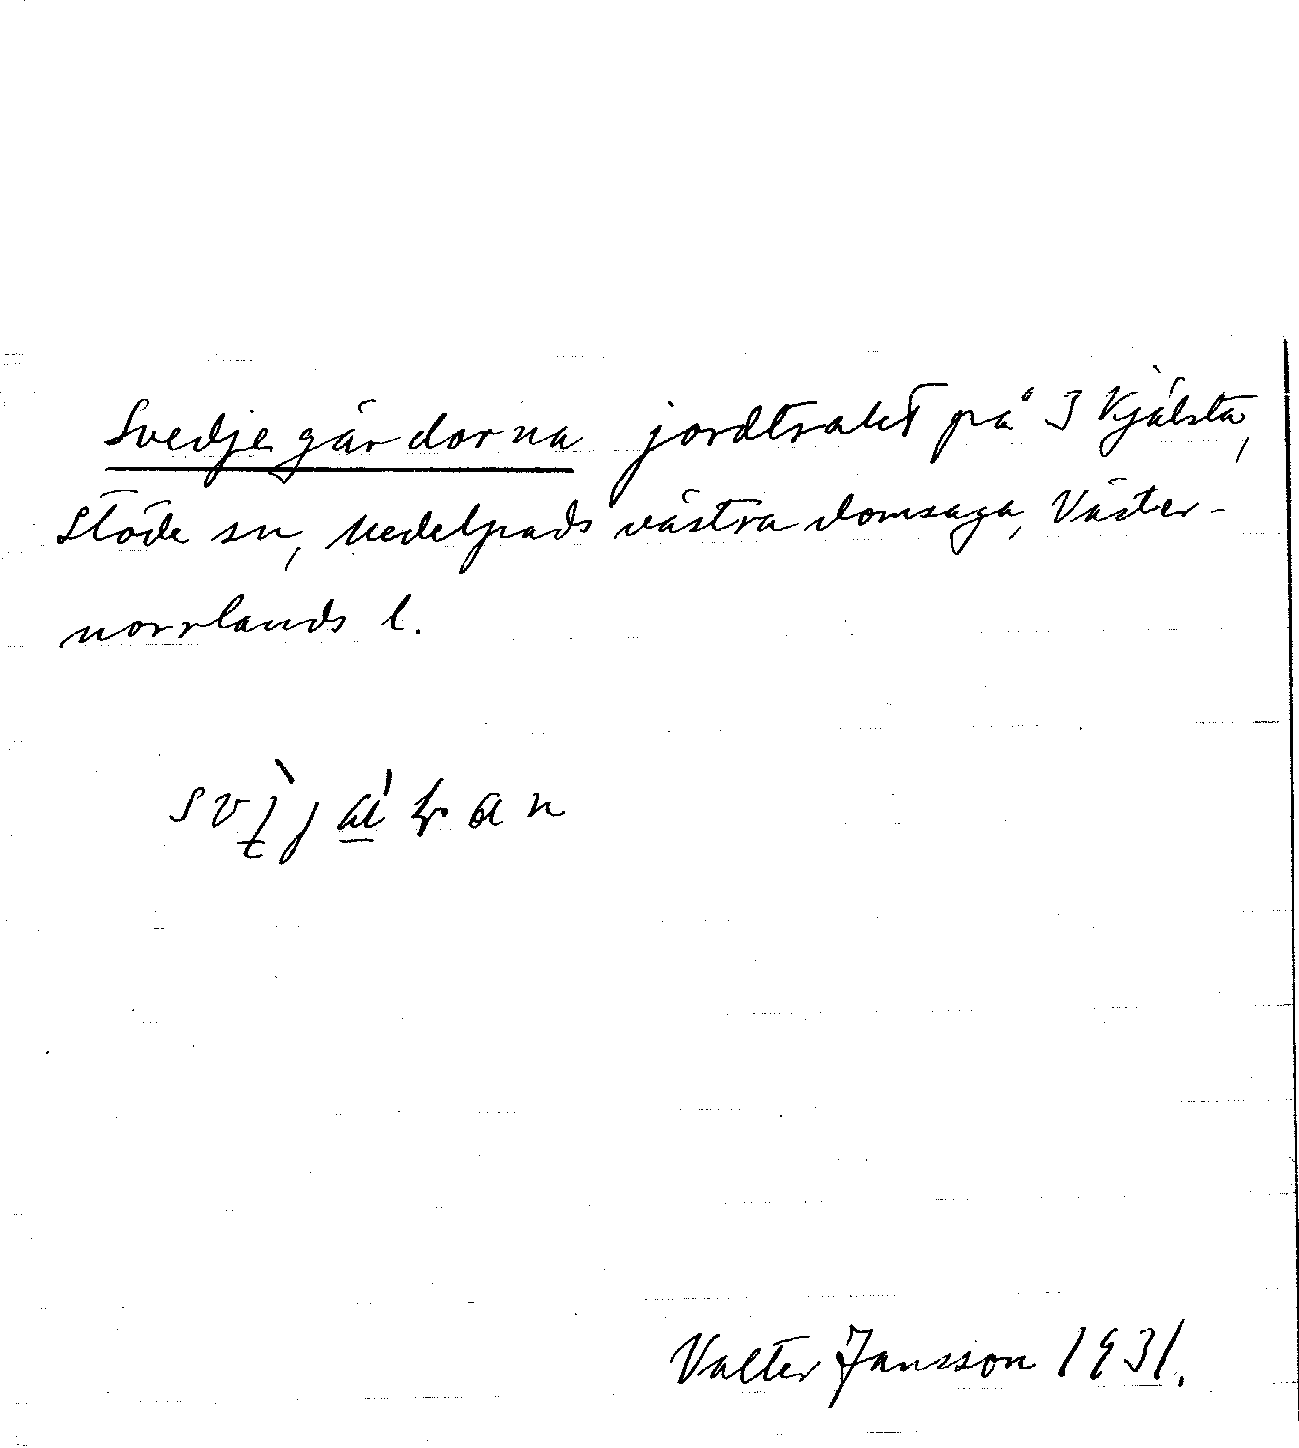 Svedjegärdorna jordtrakt på 3 Kjälsta,
Stöde sn, Medelpads västra domsaga, Väster-
norrlands l.
Valter Jansson 1931.